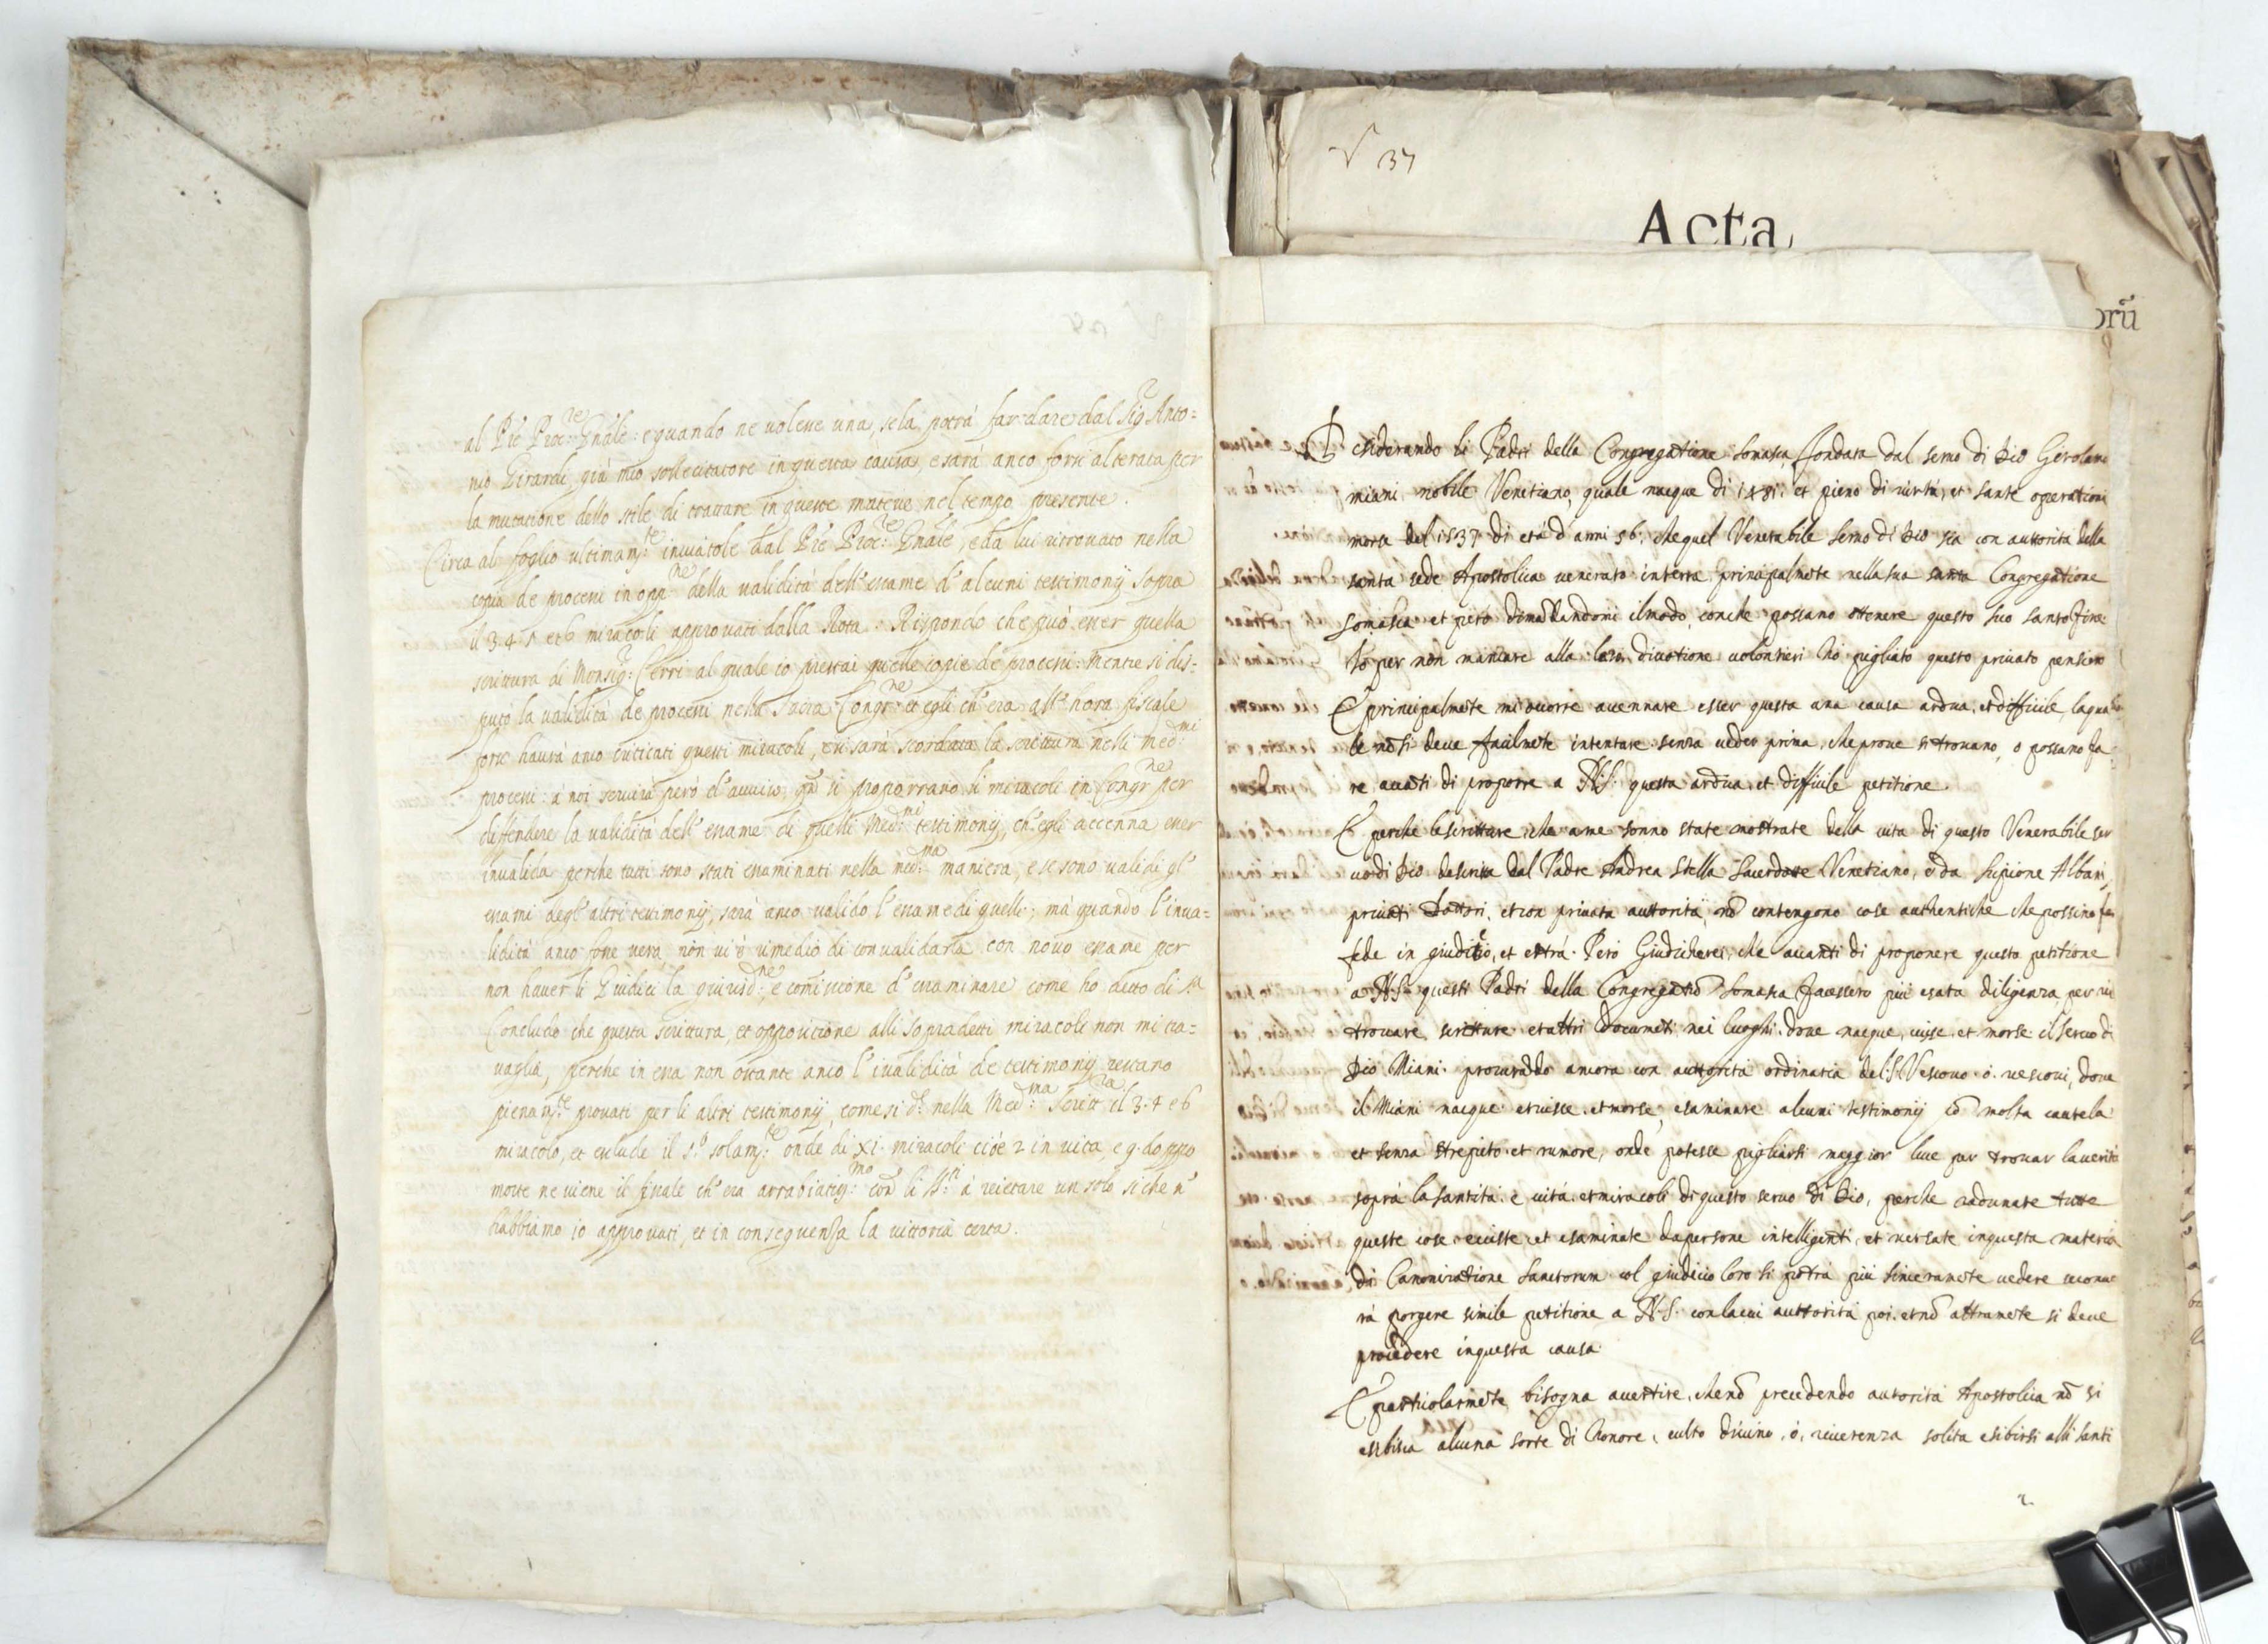 al P̄re Proc:re Gn̄ale: e quando ne volesse una, se la potrà far dare dal Sig.r Anto=
nio Girardi già mio sollecitatore in questa causa, e sarà anco forse alterata per
la mutatione dello stile di trattare in queste materie nel tempo presente.
Circa al foglio ultimam:te inviatole dal P̄re Proc:re Gn̄ale, e da lui ritrovato nella
copia de processi in opp:ne della validità dell'esame d'alcuni testimonij sopra
il 3. 4. 5 et 6 miracoli approvati dalla Rota: Rispondo che può esser quella
scrittura di Monsig:r Cerri al quale io prestai quelle copie de processi: Mentre si dis-
putò la validità de processi nella Sacra Congr:ne et egli ch'era all'hora fiscale
forse havrà anco criticati questi miracoli, e vi sarà scordata la scrittura nelli med:mi
processi: à noi servirà però d'avviso, q̄n si proporrano li miracoli in Congr:ne per
diffendere la validità dell'esame di quelli Med:mi testimonij, ch'egli accenna esser
invalida perche tutti sono stati esaminati nella med:ma maniera, e se sono validi gl'
esami degl'altri testimonij, sarà anco valido l'esame di quelli; mà quando l'inva=
lidità anco fosse vera, non vi è rimedio di convalidarla con novo esame per
non haver li Giudici la giurisd:ne e comissione d'esaminare come ho detto di s.a
Concludo che questa scrittura, et oppositione alli sopradetti miracoli non mi tra=
vaglia, perche in essa non ostante anco l'invalidità de testimonij restano
pienam:te provati per li altri testimonij, come si d: nella Med:ma Scritt:ra il 3. 4 e 6
miracolo, et esclude il 5.o solam:te onde di XI. miracoli cioè 2 in vita, e 9. doppo
morte ne viene il fiscale ch'era arrabiatiss:mo con li S:ti à reiettare un solo siche n'
habbiamo 10 approvati, et in conseguenza la vittoria certa.
37
Acta
orū
Desiderando li Padri della Congregatione Somasca fondata dal servo di Dio Gerolamo
miani nobile Venetiano, quale nacque di 1481. et pieno di virtù, et sante operationi
morse del 1537 di età d'anni 56. che quel Venerabile Servo di Dio sia con auttorità della
santa sede Apostolica venerato in terra principalmēte nella sua santa Congregatione
Somasca et però dimādandomi il modo, con che possano ottenere questo suo santo fine
Io per non mancare alla loro divotione volontieri hò pigliato questo privato pensiero
E principalmēte mi occorre accennare esser questa una causa ardua, et difficile, la qua
le nō si deve facilmēte intentare senza veder prima, che prove si trovano, o possano fa
re avanti di proporre a N.S. questa ardua et difficile petitione.
E perche le scritture, che a me sonno state mostrate della vita di questo Venerabile ser
vo di Dio descritta dal Padre Andrea Stella Sacerdote Venetiano, e da Scipione Albani,
privati Dottori, et con privata auttorità, nō contengono cose authentiche che possino far
fede in giuditio, et extra. Però Giudicherei, che avanti di proponere questa petitione
a N.S. questi Padri della Congregatiō Somasca facessero più esata diligenza per ri
trovare scritture et altri documēti nei luoghi, dove nacque, visse et morse il Servo di
Dio Miani. procurādo ancora con auttorità ordinaria del S. Vescovo ò vescovi, dove
il Miani nacque et visse et morse, esaminare alcuni testimonij cō molta cautela
et senza strepito et rumore, onde potesse pigliarsi maggior luce per trovar la verità
sopra la santità e vita et miracoli di questo servo di Dio, perche radunate tutte
queste cose e viste et esaminate da persone intelligenti, et versate in questa materia
di Canonizatione Sanctorum col giudicio loro si potrà più sinceramēte vedere se conve
rà porgere simile petitione a N.S. con la cui auttorità poi et nō altramēte si deve
procedere in questa causa
E particolarmēte bisogna avertire, che nō precedendo autorità Apostolica nō si
esibisca alcuna sorte di honore, culto divino, ò, riverenza solita esibirsi alli santi